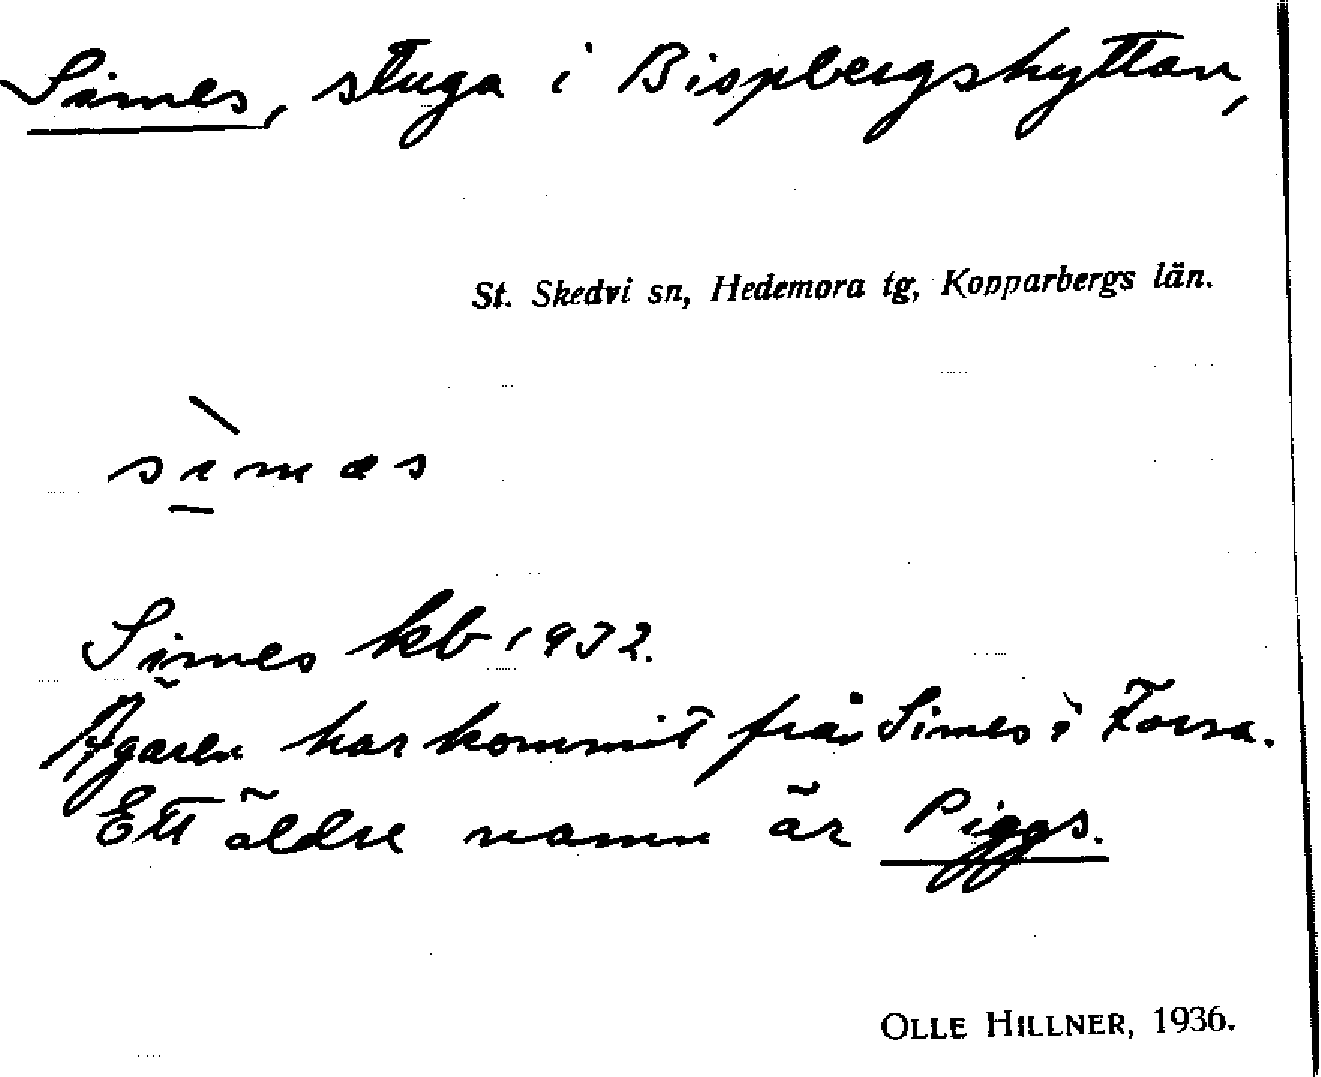 Simes, stuga i Bispbergshyttan,
St. Skedvi sn, Hedemora tg, Kopparbergs län.
sìmæs
Simes kb 1932.
Ägaren har kommit från Simes i Forsa.
Ett äldre namn är Piggs.
OLLE HILLNER, 1936.